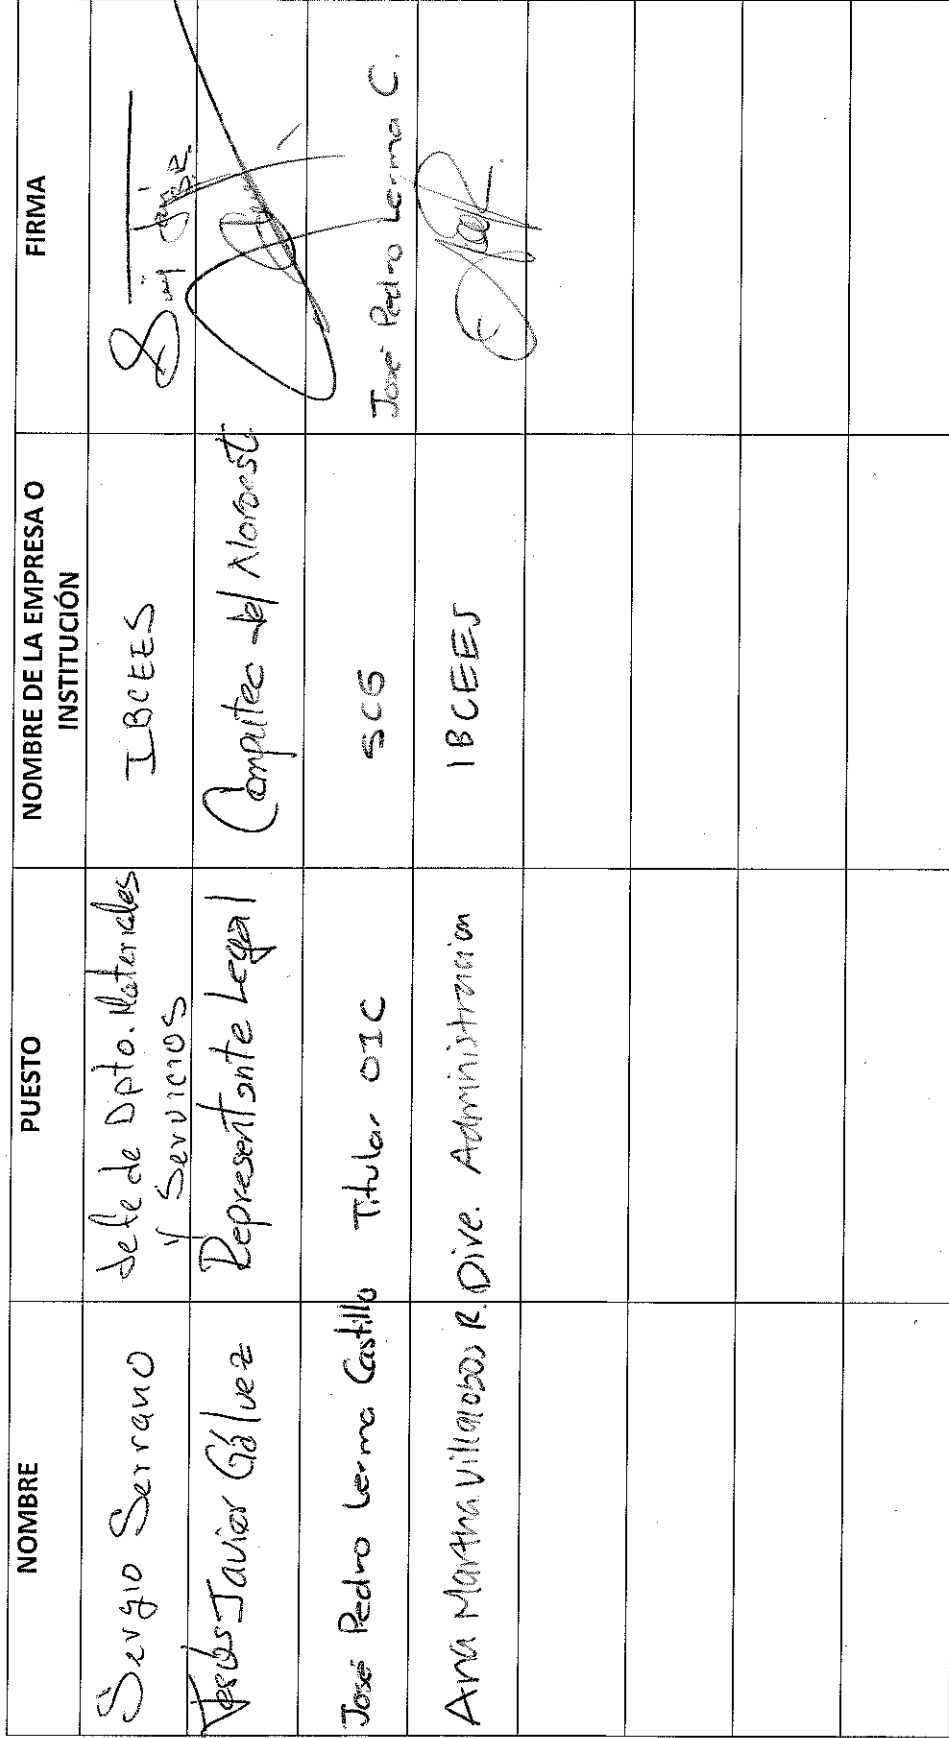 NOMBRE
PUESTO
NOMBRE DE LA EMPRESA O
INSTITUCIÓN
FIRMA
Sergio Serrano
Jefe de Dpto. Materiales
Y Servicios
IBCEES
Jesús Javier Gálvez
Representante Legal
Computec del Noroest.
José Pedro Lerma Castillo
Titular OIC
SCG
José Pedro Lerma C.
Ana Martha Villalobos R.
Dire. Administracion
IBCEES